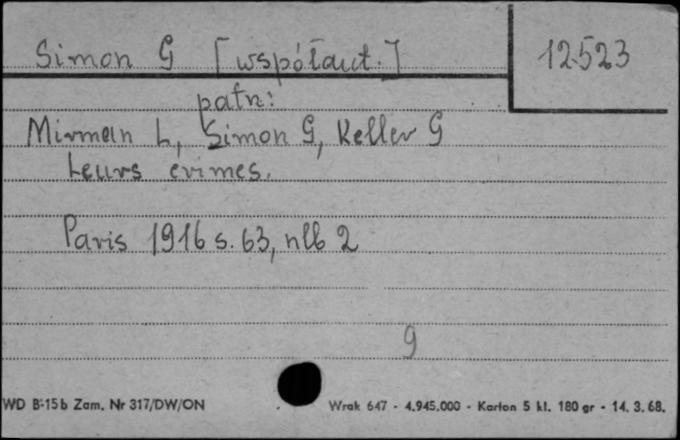 Simon G [współaut.] 12523
patrz:
Mirman L, Simon G, Keller G
Leurs crimes.
Paris 1916 s. 63, nlb 2
9
WD B-15b Zam. Nr 317/DW/ON Wrak 647 - 4.945.000 - Karton 5 kl. 180 gr - 14. 3. 68.